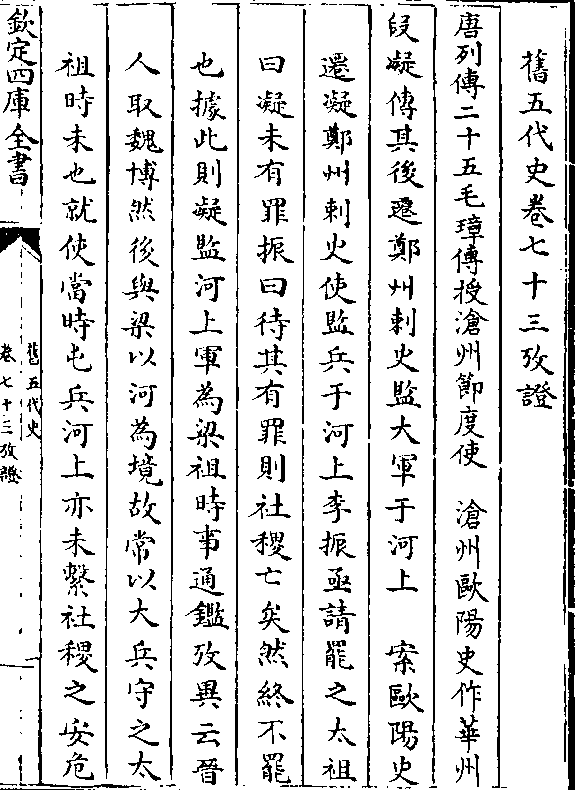 舊五代史卷七十三攷證
唐列傳二十五毛璋傳授滄州節度使　滄州歐陽史作華州
段凝傳其後遷鄭州刺史監大軍于河上　案歐陽史
遷凝鄭州刺史使監兵于河上李振亟請罷之太祖
曰凝未有罪振曰待其有罪則社稷亡矣然終不罷
也據此則凝監河上軍為梁祖時事通鑑攷異云晉
人取魏博然後與梁以河為境故常以大兵守之太
祖時未也就使當時屯兵河上亦未繫社稷之安危
欽定四庫全書
舊五代史
卷七十三攷證